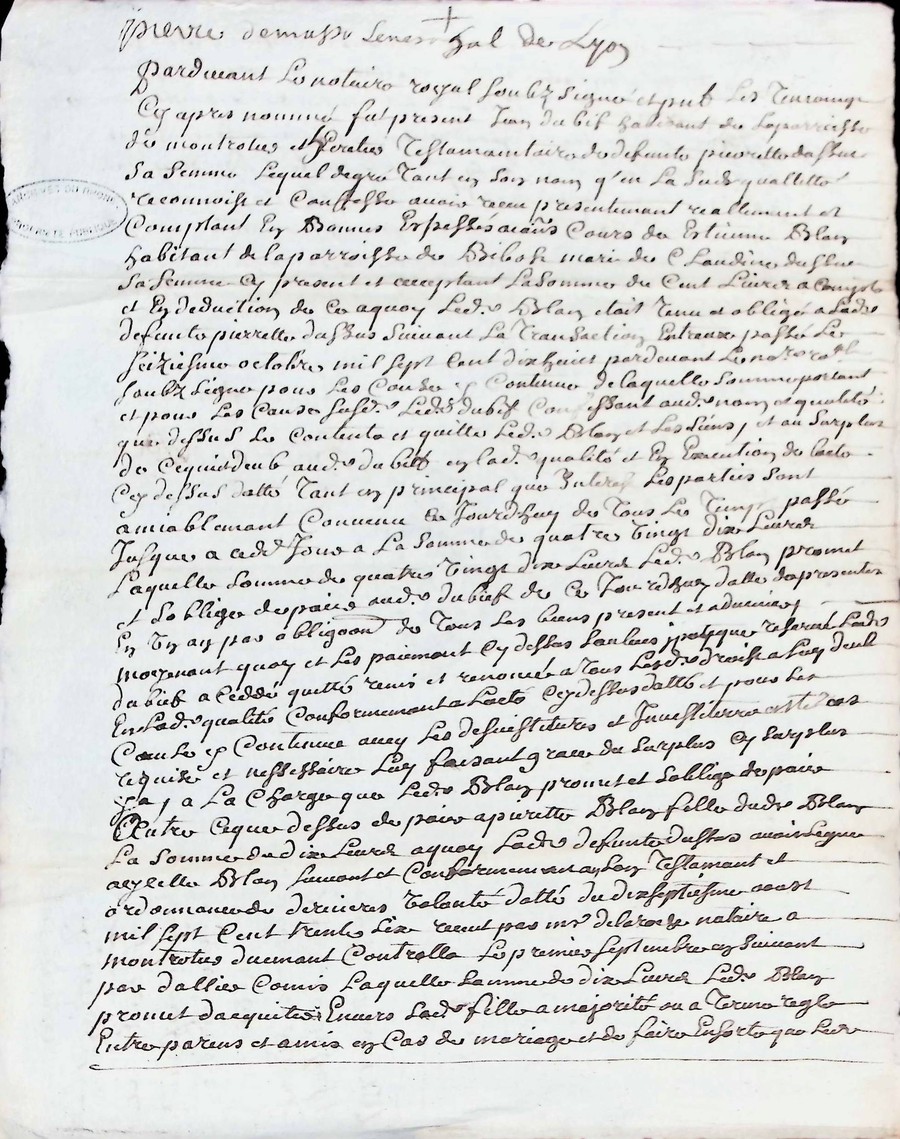 pierre demasso seneschal de Lyon
Pardevant Le notaire royal soubz signé et pnt Les Temoings
Cy apres nommé fut present Jean dubief habitant de La parroisse
de montrotier et heretier Testamantaire de defunte pierrette dassus
Sa femme Lequel de gre Tant en Son nom q'en La Sude qualitté
reconnoist et Confesse avoir receu presentemant reallement et
Comptant En Bonnes Espesses aiant Cours de Estienne Blan
habitant de la parroisse de Bibost mari de Claudine dassus
Sa femme Cy present et acceptant La Somme de Cent Livres a Compte
et En deduction de Ce aquoy Led. Blan etoit Tenu et obligé a Lade
defunte pierrette dassus Suivant La Transaction Entreux passé Le
Seiziesme octobre mil Sept Cent dix huict pardevant Le notre royal
Soubz Signé pour Les Cause y Contenue de laquelle Somme portant
et pour Les Cause Susd. Led. dubief Confessant aud. nom et qualité
que dessus Se Contente et quitte Led. Blan et Les Siens, et au Surplus
de Ce qui est deub aud. dubief en lad. qualité et En Execution de Lacte
Cy dessus datté Tant en principal que Interes Les parties Sont
amiablement Convenu Ce Jourdhuy de Tous Les Temps passé
Jusque a cede Jour a La Somme de quatre Vingt dix Livres
Laquelle Somme de quatre Vingt dix Livres Led. Blan promet
et Soblige de paier aud. dubief de Ce Jourdhuy datte des presentes
En Un an par obligaon de Tous Les biens present et advenir,
moyenant quoy et Les paiement Cy dessus Led.
dubief a Ceddé quitté remis et renoncé a Tous Lesd. droits a Luy deub
En Lad. qualité Conformement a Lacte Cy dessus datté et pour Les
Cause y Contenue avec Les desvestitures et Investiture
requise et nessessaire Luy faisant grace du Surplus Sy Surplus
y a, a La Charge que Led. Blan promet et Soblige de paier
Outre Ce que dessus de paier a pierrette Blan fille dude Blan
La Somme de dix Livres aquoy Lade defunte dassus avoit Legué
a ycelle Blan Suivant et Conformement a Son Testamant et
ordonnance de dernieres Volonté datté du dixseptiesme aoust
mil Sept Cent trente Six receut par mr delaroche notaire a
montrotier duemant Controllé Le premier Septembre en Suivant
par dallier Comis Laquelle Somme de dix Livres Led. Blan
promet dacquiter Envers Lade fille a majorité ou a Terme reglé
Entre parens et amis en Cas de mariage et de faire Ensorte que Lade
ARCHIVES DU RHONE